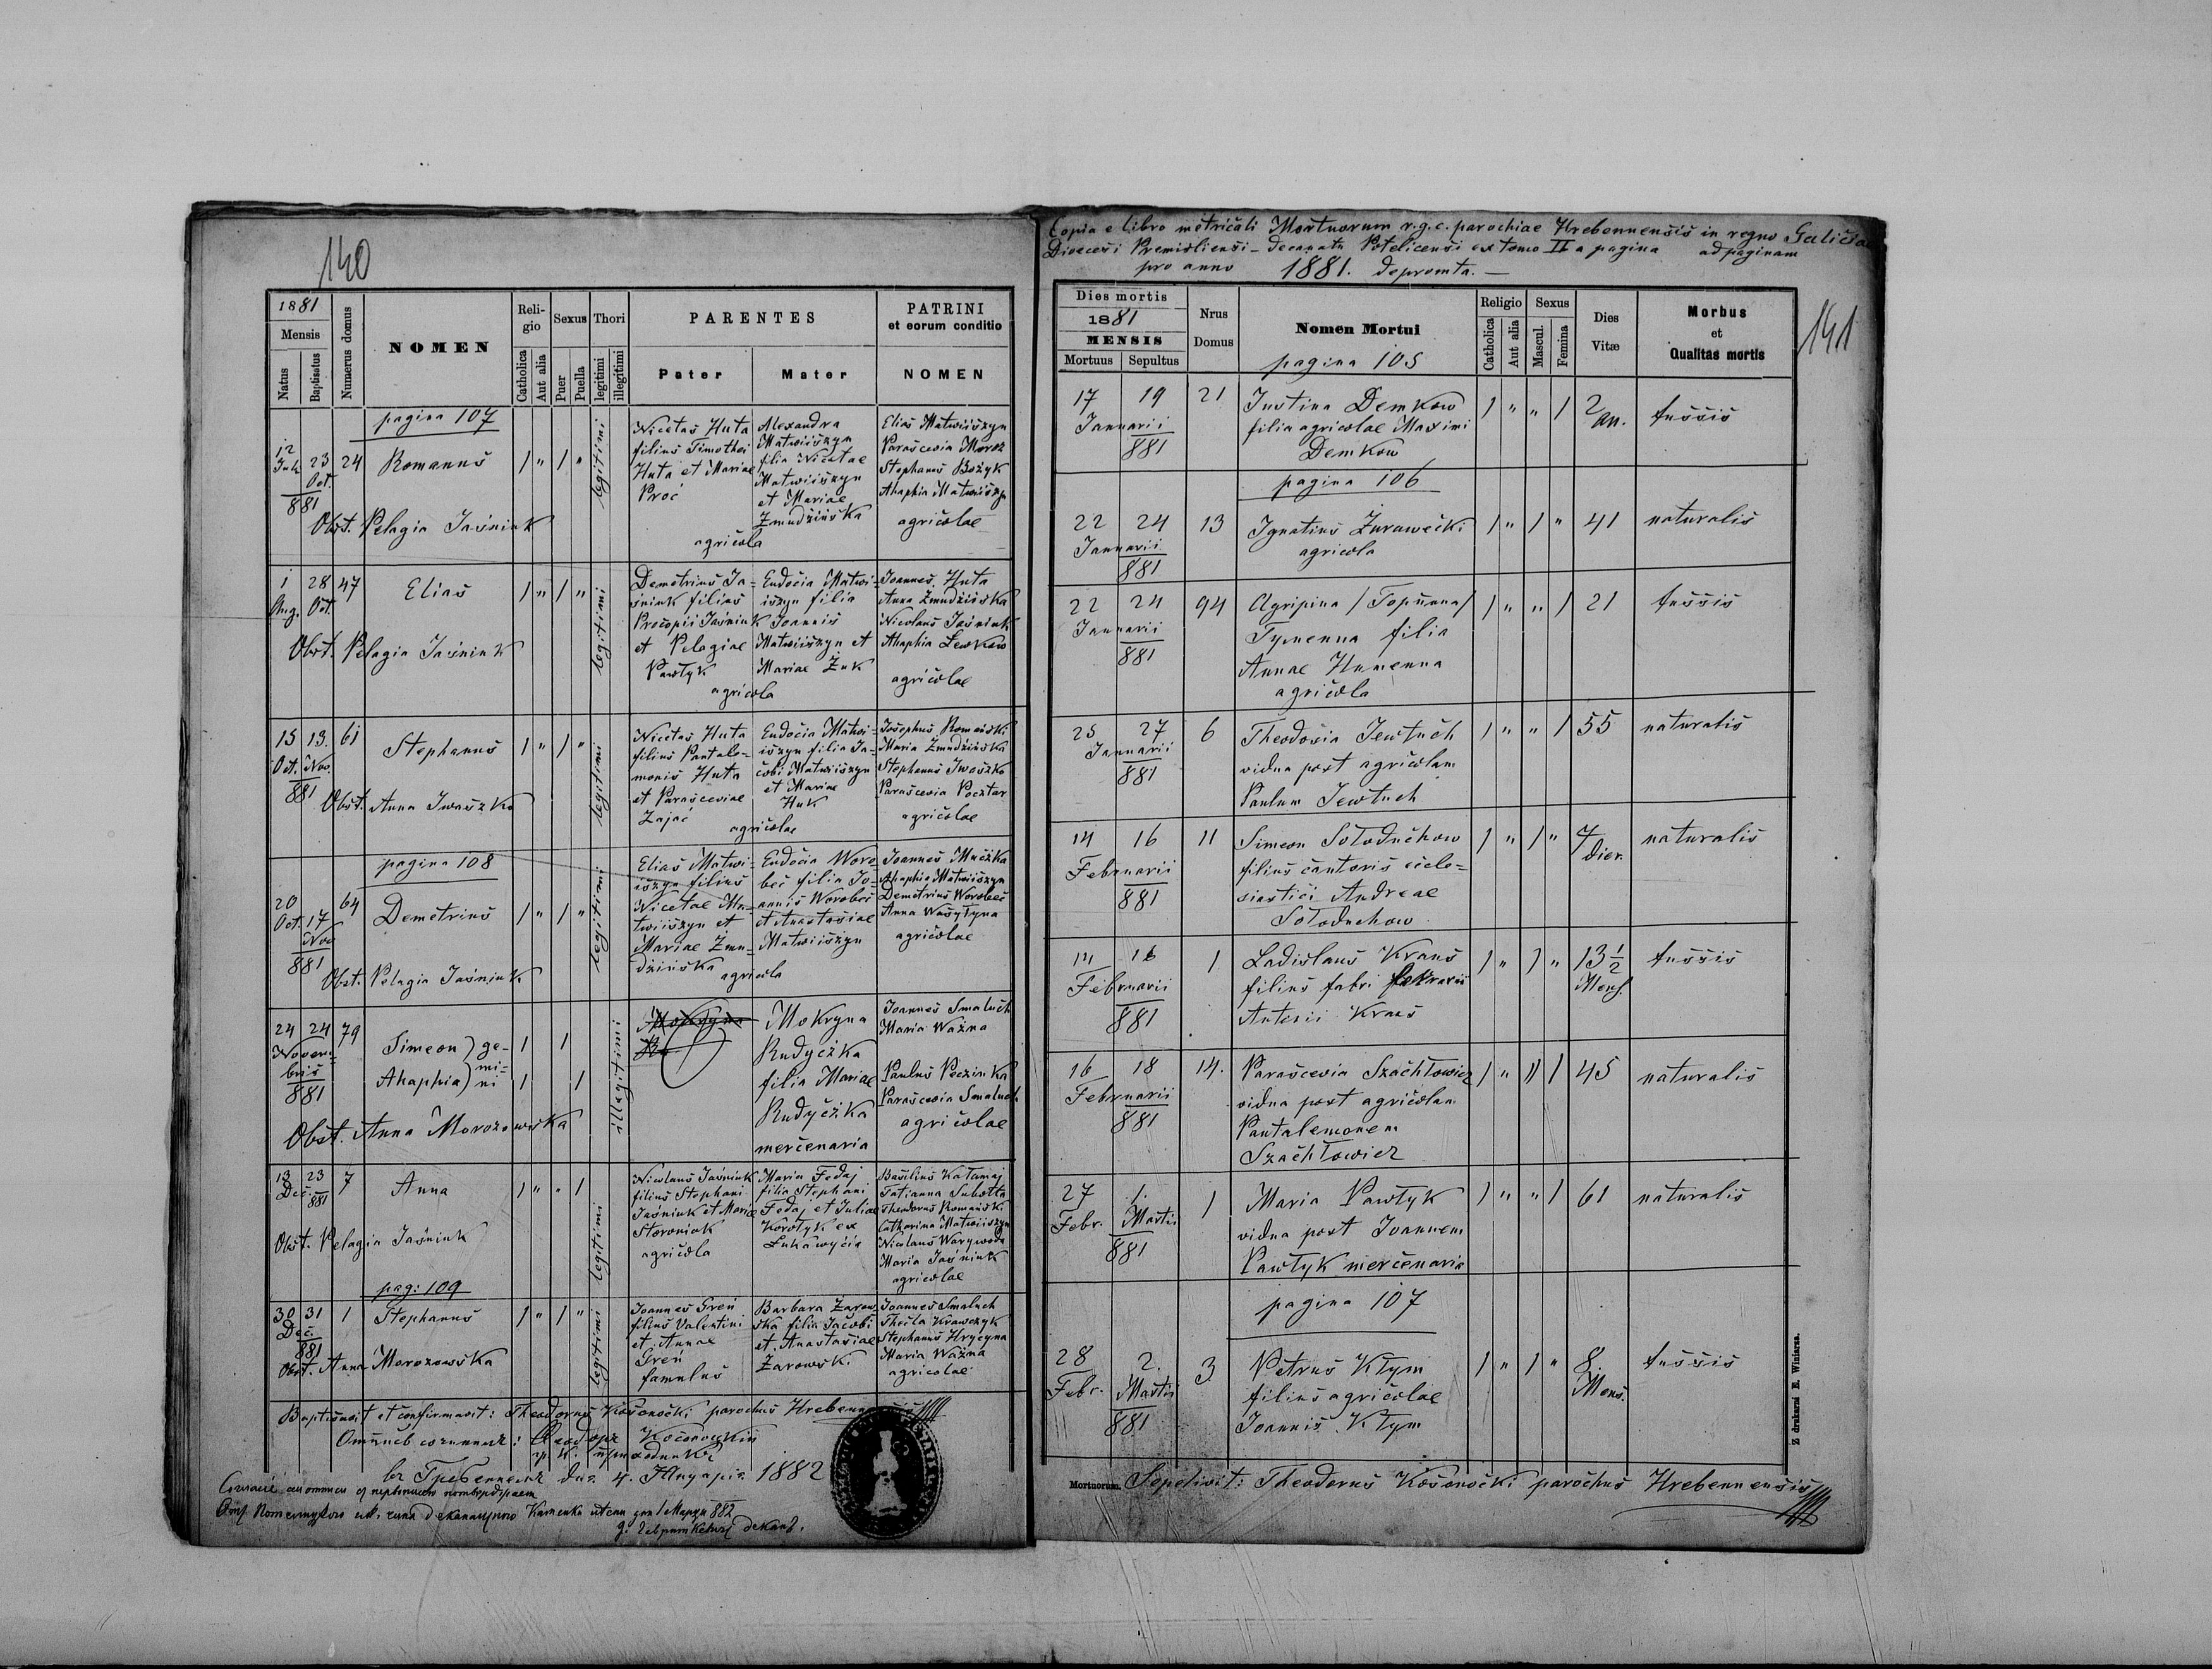 140
1881
Mensis
Natus
Baptisatus
Numerus domus
NOMEN
Reli-
gio
Catholica
Aut alia
Sexus
Puer
Puella
Thori
legitimi
illegitimi
PARENTES
Pater
Mater
PATRINI
et eorum conditio
NOMEN
pagina 107
12 23 24 Romanus 1 " 1 " legitimi
Jul. Oct.
881
Nicetas Huta
filius Timothei
Huta et Mariae
Proć
agricola
Alexandra
Matwiiszyn
filia Nicetae
Matwiiszyn
et Mariae
Żmudzińska
Elias Matwiiszyn
Parascevia Moroz
Stephanus Bożyk
Ahaphia Matwiiszyn
agricolae
Obst. Pelagia Jaśniuk
1 28 47 Elias 1 " 1 " legitimi
Aug. Oct.
Demetrius Ja-
śniuk filius
Procopii Jaśniuk
et Pelagiae
Pawłyk
agricola
Eudocia Matwi-
iszyn filia
Joannis
Matwiiszyn et
Mariae Żuk
Joannes Huta
Anna Żmudzińska
Nicolaus Jaśniuk
Ahaphia Lewkow
agricolae
Obst. Pelagia Jaśniuk
15 13. 61 Stephanus 1 " 1 " legitimi
Oct. Nov.
881
Nicetas Huta
filius Pantale-
monis Huta
et Parasceviae
Zając
agricolae
Eudocia Matwi-
iszyn filia Ja-
cobi Matwiiszyn
et Mariae
Huk
Josephus Romański
Maria Żmudzińska
Stephanus Iwaszko
Parascevia Pocztar
agricolae
Obst. Anna Iwaszko
pagina 108
20 17 64 Demetrius 1 " 1 " legitimi
Oct. Nov
881
Elias Matwi-
iszyn filius
Nicetae Ma-
twiiszyn et
Mariae Żmu-
dzińska
agricola
Eudocia Woro
bec filia Jo-
annis Worobec
et Anastasiae
Matwiiszyn
Joannes Mućzka
Ahaphia Matwiiszyn
Demetrius Worobec
Anna Wasylyna
agricolae
Obst. Pelagia Jaśniuk
24 24 79 Simeon ) ge- 1 1 illegitimi
Novem-
bris
881
Ahaphia ) mi-
ni 1 1
Mokryna
Ru
Mokryna
Rudyczka
filia Mariae
Rudyczka
mercenaria
Joannes Smaluch
Maria Ważna
Paulus Peczinka
Parascevia Smaluch
agricolae
Obst. Anna Morozowska
13 23 7 Anna 1 " " 1 legitimi
Dec. 881
Nicolaus Jaśniuk
filius Stephani
Jaśniuk et Mariae
Storoniak
agricola
Maria Fedaj
filia Stephani
Fedaj et Juliae
Korołyk ex
Łukawycia
Basilius Kałamaj
Tatianna Subotta
Theodorus Romański
Catharina Matwiiszyn
Nicolaus Warywoda
Maria Jaśniuk
agricolae
Obst. Pelagia Jaśniuk
pag: 109
30 31 1 Stephanus 1 " 1 " legitimi
Dec.
881
Joannes Greń
filius Valentini
et Annae
Greń
famulus
Barbara Żarow-
ska filia Jacobi
et Anastasiae
Żarowski
Joannes Smaluch
Thecla Krawczyk
Stephanus Hrycyna
Maria Ważna
agricolae
Obst. Anna Morozowska
Baptisavit et confirmavit: Theodorus Kosonocki parochus Hrebennensis
въ Гребенномъ дня 4. Януарія 1882
141
Copia e libro metricali Mortuorum r.g.c. parochiae Hrebennensis in regno Galiciae
Dioecesi Premisliensi - decanatu Potelicensi ex tomo II a pagina ad paginam
pro anno 1881. depromta. —
Dies mortis
1881
MENSIS
Mortuus
Sepultus
Nrus
Domus
Nomen Mortui
Religio
Catholica
Aut alia
Sexus
Mascul.
Femina
Dies
Vitæ
Morbus
et
Qualitas mortis
pagina 105
17 19 21 Justina Demkow 1 " " 1 2 an. tussis
Januarii filia agricolae Maximi
881 Demkow
pagina 106
22 24 13 Ignatius Żurawecki 1 " 1 " 41 naturalis
Januarii agricola
881
22 24 94 Agripina / Горпина / 1 " " 1 21 tussis
Januarii Tymenna filia
881 Annae Humenna
agricola
25 27 6 Theodosia Jewtuch 1 " " 1 55 naturalis
Januarii vidua post agricolam
881 Paulum Jewtuch
14 16 11 Simeon Sołoduchow 1 " 1 " 7 dier. naturalis
Februarii filius cantoris eccle-
881 siastici Andreae
Sołoduchow
14 16 1 Ladislaus Kraus 1 " 1 " 13 1/2 Mens. tussis
Februarii filius fabri
881 Antonii Kraus
16 18 14. Parascevia Szachłowicz 1 " " 1 45 naturalis
Februarii vidua post agricolam
881 Pantalemonem
Szachłowicz
27 1. 1 Maria Pawłyk 1 " " 1 61 naturalis
Febr. Martii vidua post Joannem
881 Pawłyk mercenaria
pagina 107
28 2. 3 Petrus Kłym 1 " 1 " 8. Mens. tussis
Febr. Martii filius agricolae
881 Joannis Kłym
Mortuorum. Sepelivit: Theodorus Kosonocki parochus Hrebennensis
Z drukarni E. Winiarza.